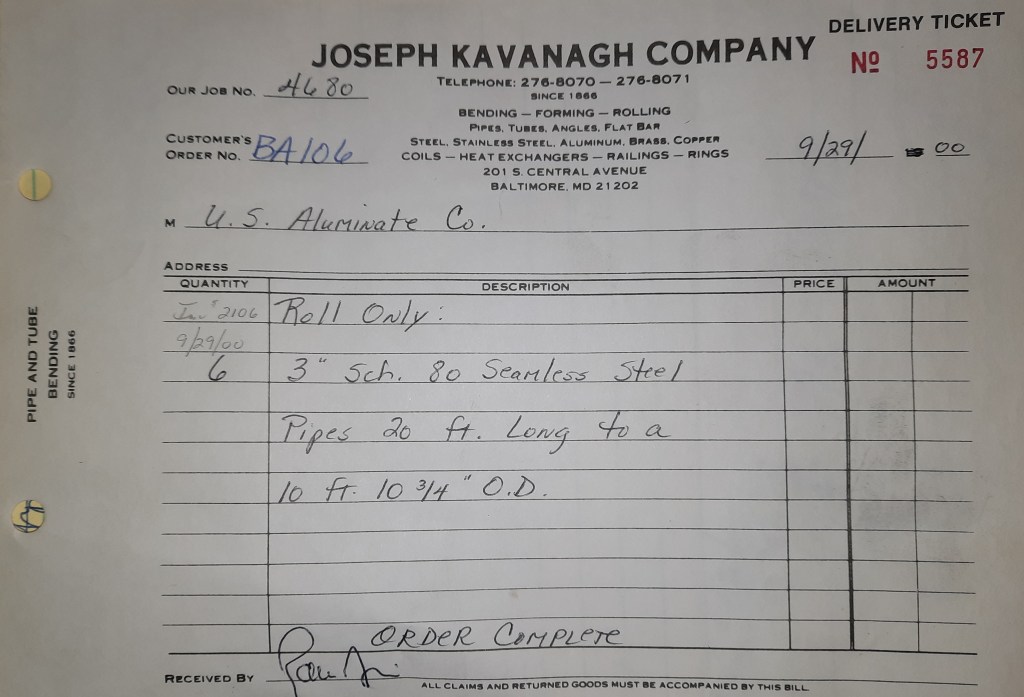 DELIVERY TICKET
JOSEPH KAVANAGH COMPANY
Nº 5587
TELEPHONE: 276-8070 — 276-8071
SINCE 1866
OUR JOB NO. 4680
BENDING — FORMING — ROLLING
PIPES, TUBES, ANGLES, FLAT BAR
STEEL, STAINLESS STEEL, ALUMINUM, BRASS, COPPER
CUSTOMER'S ORDER NO. BA106
COILS — HEAT EXCHANGERS — RAILINGS — RINGS
9/29/ 00
201 S. CENTRAL AVENUE
BALTIMORE, MD 21202
M U.S. Aluminate Co.
ADDRESS
QUANTITY DESCRIPTION PRICE AMOUNT
2106 Roll Only:
9/29/00
6 3" Sch. 80 Seamless Steel
Pipes 20 ft. Long to a
10 ft. 10 3/4" O.D.
ORDER COMPLETE
RECEIVED BY
ALL CLAIMS AND RETURNED GOODS MUST BE ACCOMPANIED BY THIS BILL
PIPE AND TUBE
BENDING
SINCE 1866